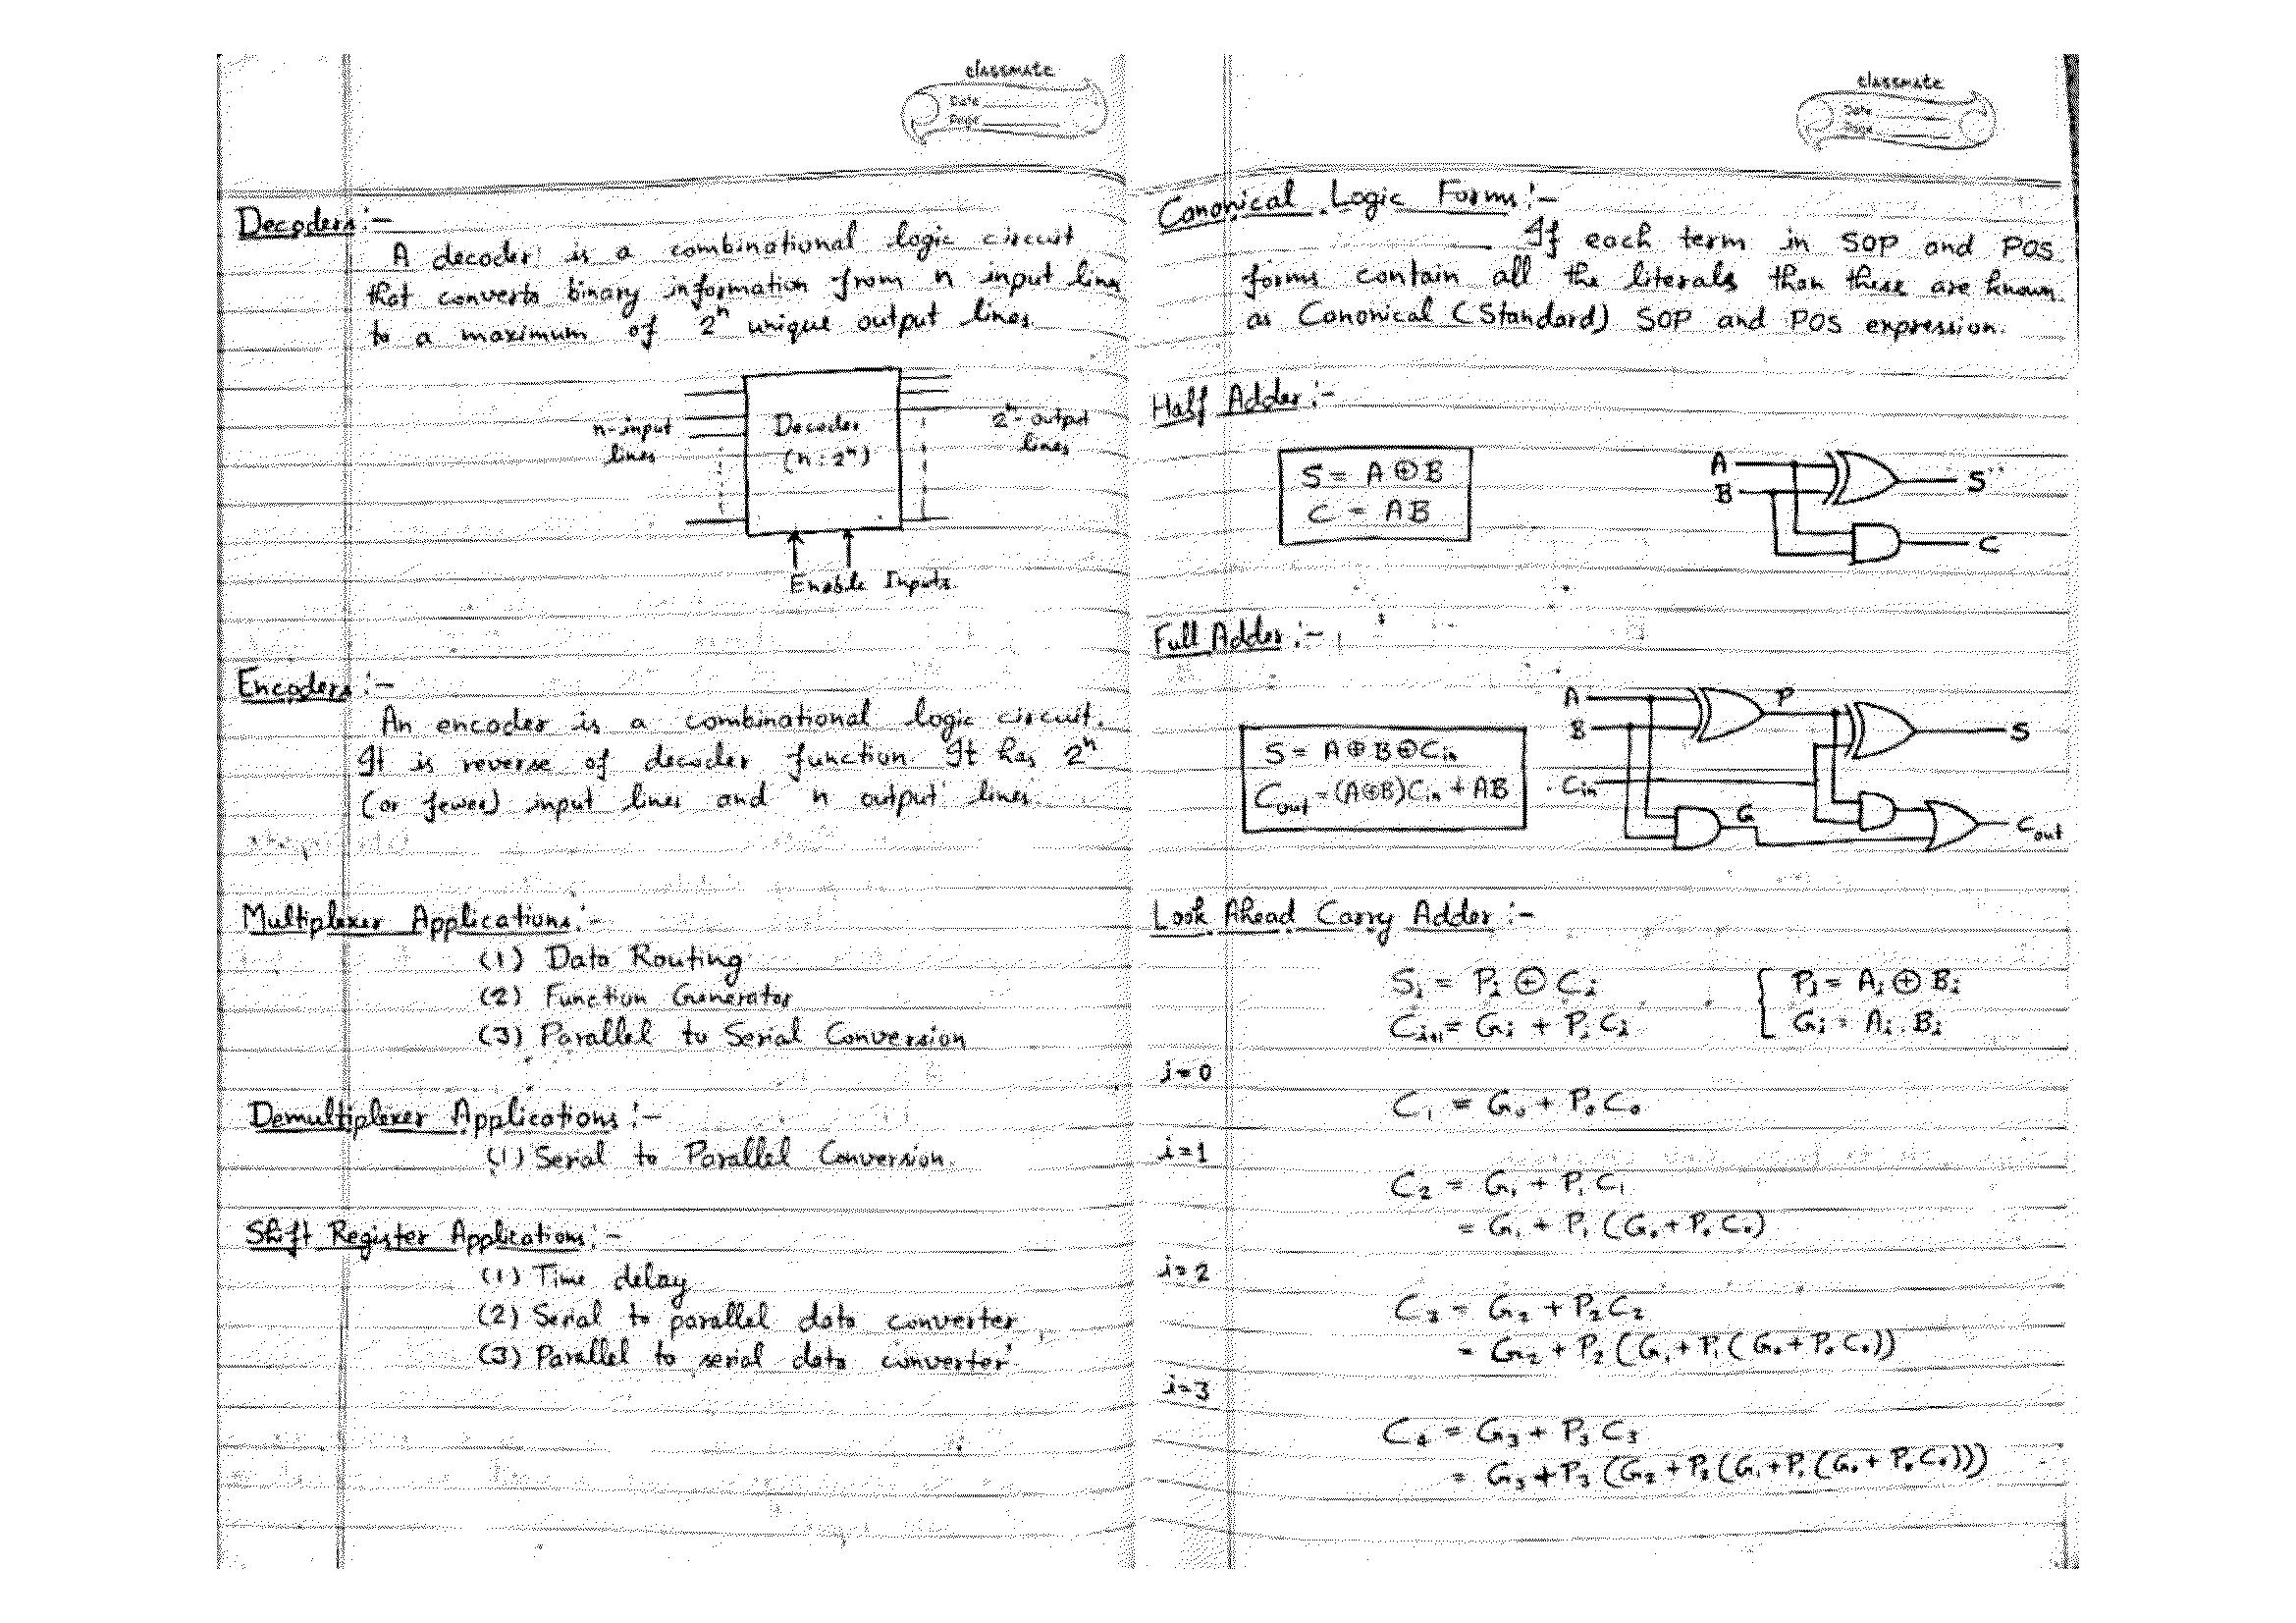 classmate
Date
Page
Decoders:-
A decoder is a combinational logic circuit
that converts binary information from n input line
to a maximum of 2ⁿ unique output lines.
n-input
lines
Decoder
(n : 2ⁿ)
2ⁿ- output
lines
Enable Inputs
Encoders:-
An encoder is a combinational logic circuit.
It is reverse of decoder function. It has 2ⁿ
(or fewer) input lines and n output lines.
Multiplexer Applications:-
(1) Data Routing
(2) Function Generator
(3) Parallel to Serial Conversion
Demultiplexer Applications:-
(1) Serial to Parallel Conversion.
Shift Register Applications:-
(1) Time delay
(2) Serial to parallel data converter
(3) Parallel to serial data converter
classmate
Date
Page
Canonical Logic Forms:-
If each term in SOP and POS
forms contain all the literals than these are known
as Canonical (Standard) SOP and POS expression.
Half Adder:-
S = A ⊕ B
C = AB
A
B
S
C
Full Adder:-
S = A⊕B⊕Cin
Cout = (A⊕B)Cin + AB
A
B
Cin
P
G
S
Cout
Look Ahead Carry Adder:-
Sᵢ = Pᵢ ⊕ Cᵢ
Cᵢ₊₁ = Gᵢ + PᵢCᵢ
Pᵢ = Aᵢ ⊕ Bᵢ
Gᵢ = Aᵢ . Bᵢ
i=0
C₁ = G₀ + P₀C₀
i=1
C₂ = G₁ + P₁C₁
= G₁ + P₁ (G₀ + P₀C₀)
i=2
C₃ = G₂ + P₂C₂
= G₂ + P₂ (G₁ + P₁ (G₀ + P₀C₀))
i=3
C₄ = G₃ + P₃C₃
= G₃ + P₃ (G₂ + P₂ (G₁ + P₁ (G₀ + P₀C₀)))